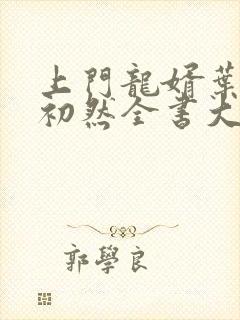 上門龍婿葉
初然全書大
郭學良